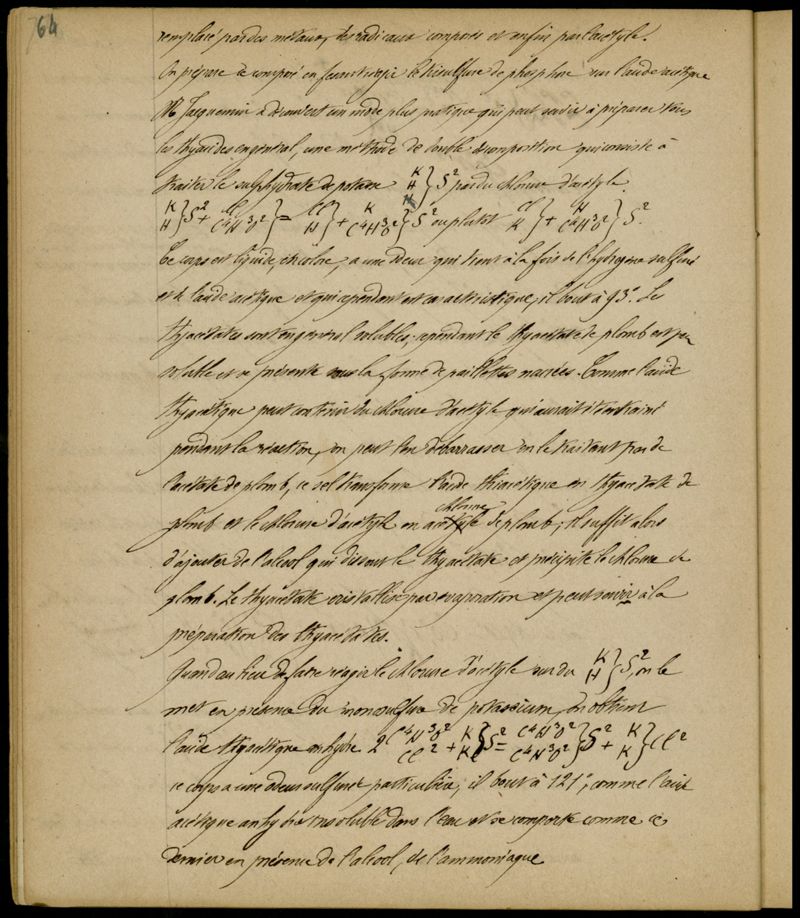 64
remplacé par des métaux, des radicaux composés et enfin par l'acétyle.
On prépare ce composé en faisant réagir le bisulfure de phosphore sur l'acide acétique
M. Jacquemin a découvert un mode plus pratique qui peut servir à préparer tous
les thyacides en général, une méthode de double décomposition qui consiste à
traiter le sulphydrate de potasse K H H } S² par du chlorure d'acétyle.
K H } S² + Cl C⁴H³O² } = Cl H } + K C⁴H³O² } S² ou plutot Cl K } + H C⁴H³O² } S².
Ce corps est liquide, incolore, a une odeur qui tient à la fois de l'hydrogène sulfuré
et de l'acide acétique et qui cependant est caractéristique, il bout à 93°. Les
thyacétates sont en général solubles, cependant le thyacétate de plomb est peu
soluble et se présente sous la forme de paillettes nacrées. Comme l'acide
thyacétique peut contenir du chlorure d'acétyle qui aurait été entrainé
pendant la réaction, on peut l'en débarrasser en le traitant par de
l'acétate de plomb, ce sel transforme l'acide thiacétique en thyacétate de
plomb et le chlorure d'acétyle en chlorure de plomb; il suffit alors
d'ajouter de l'alcool qui dissout le thyacétate et précipite le chlorure de
plomb. Le thyacétate cristallise par évaporation et peut servir à la
préparation des thyacétates.
Quand au lieu de faire réagir le chlorure d'acétyle sur du K H } S², on le
met en présence du monosulfure de potassium, on obtient
l'acide thyacétique anhydre 2 C⁴H³O² Cl² + K K } S² = C⁴H³O² C⁴H³O² } S² + K K } Cl²
ce corps a une odeur sulfurée particulière, il bout à 121°, comme l'acide
acétique anhydre insoluble dans l'eau et se comporte comme ce
dernier en présence de l'alcool, de l'ammoniaque